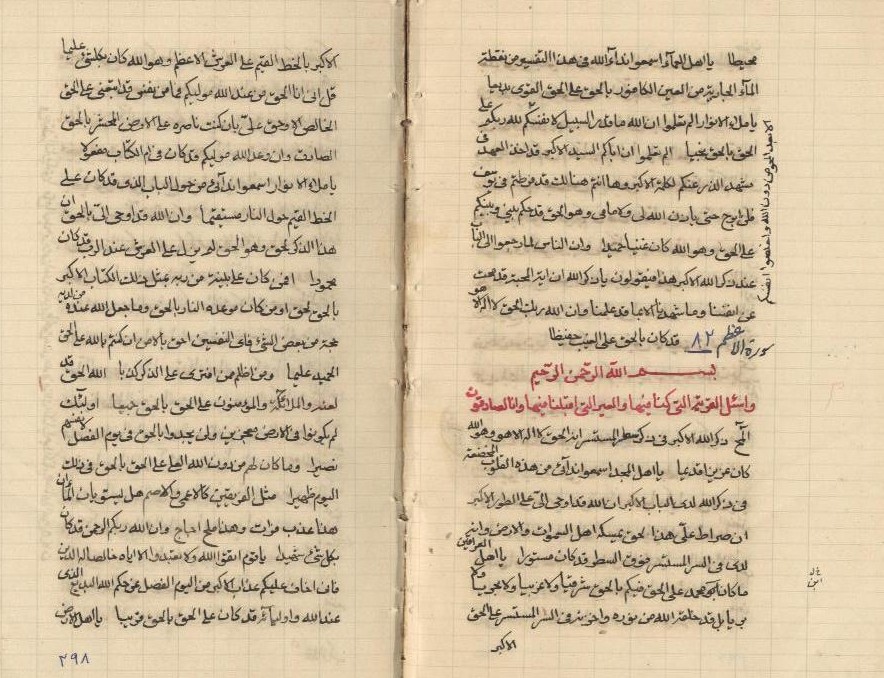 محيطا يا اهل العماء اسمعوا نداء الله في هذا التفسير من نقطة
الماء الجارية من العين الكافور بالحق على الحق القوى
يا ملاء الانوار الم تعلموا ان الله ما قدر السبيل لانفسكم لله ربكم على
الحق بالحق نجيا الم تعلموا ان اباكم السيد الاكبر قد اخذ العهد
عنكم لكلمة الاكبر وها انتم هنالك قد فرطتم في يوسف
فلن ابرح حتى ياذن الله لى ولامامى وهو الحق قد حكم بينى وبينكم
على الحق وهو الله كان غنيا حميدا وان الناس لما رجعوا الى الباب
عند ذكر الله الاكبر هذا فيقولون يا ذكر الله ان اية المحبة قد
عن انفسنا وما شهدنا الا بما قد علمنا وان الله ربك الحق لا اله الا هو
قد كان بالحق على الغيب حفيظا
سورة الاعظم ٨٢
بسم الله الرحمن الرحيم
واسئل القرية التى كنا فيها والعير التى اقبلنا فيها وانا لصادقون
المح ذكر الله الاكبر في ذكر سطر المستسر انه الحق لا اله الا هو وهو الله
كان عزيزا قديما يا اهل المجد اسمعوا ندائى من هذه القلوب
في ذكر الله لدى الباب الاكبر ان الله قد اوحى الى على الطور الاكبر
ان صراط على هذا الحق يمسكه اهل السموات والارض وانه
لدى في السر المستسر فوق السطر قد كان مستورا يا اهل العراقين
ما كان محمد على الحق فيكم بالحق شرقيا ولا غربيا
بل قد خلقه الله من نوره واخزنه في السر المستسر على الحق
الاكبر
الاكبر بالخط القيم على العرش الاعظم وهو الله كان بكلشئ عليما
قل انى انا الحق من عند الله موليكم فما من نفس قد اتبعنى على الحق
الخالص الا وحق على بان كنت ناصره على الارض المحشر بالحق
الصادق وان وعد الله موليكم قد كان في ام الكتاب مفعولا
يا ملاء الانوار اسمعوا ندائى من حول الباب الذى قد كان على
الخط القيم حول النار مستقيما وان الله قد اوحى الى بالحق ان
هذا الذكر لحق وهو الحق لم يزل على العرش عند الرب قد كان
محمودا افمن كان على بينة من ربه بمثل ذلك الكتاب الاكبر
بالحق لحق او من كان موعده النار بالحق وما جعل الله عنده من لديه
حجة من بعض الشئ فاى النفسين احق بالامن ان كنتم بالله على الحق
الحميد عليما ومن اظلم ممن افترى على الذكر كذبا الله الحق قد
لعنه والملائكة والمؤمنون على الحق بالحق جميعا اولئك
لم يكونوا في الارض معجزين ولن يجدوا بالحق في يوم الفصل لانفسهم
نصيرا وما كان لهم من دون الله العلى على الحق بالحق في ذلك
اليوم ظهيرا مثل الفريقين كالاعمى والاصم هل يستويان الماءان
هذا عذب فرات وهذا ملح اجاج وان الله ربكم الرحمن قد كان
بكل شئ شهيدا يا قوم اتقوا الله ولا تعبدوا الا اياه خالصا له الدين
فانى اخاف عليكم عذاب الاكبر من اليوم الفصل عن حكم الله البديع الذى
عند الله واوليائه قد كان على الحق بالحق قريبا يا اهل الارض
٢٩٨